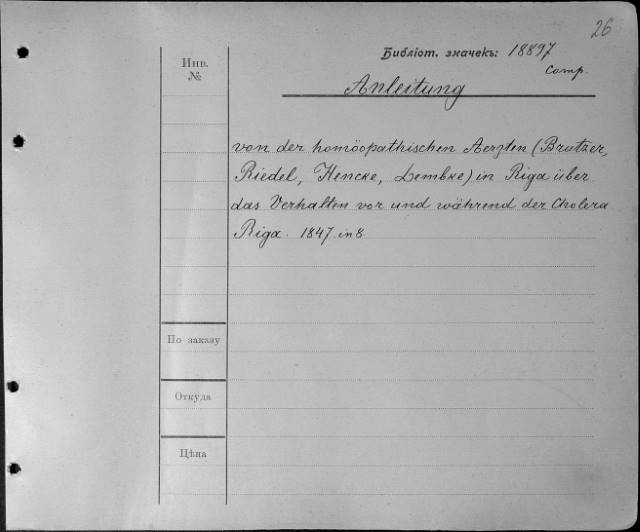 26
Библіот. значекъ: 18897
Comp.
Инв.
№
Anleitung
von der homöopathischen Aerzten (Brutzer,
Riedel, Hencke, Lembke) in Riga über
das Verhalten vor und während der Cholera
Riga. 1847. in 8
По заказу
Откуда
Цѣна